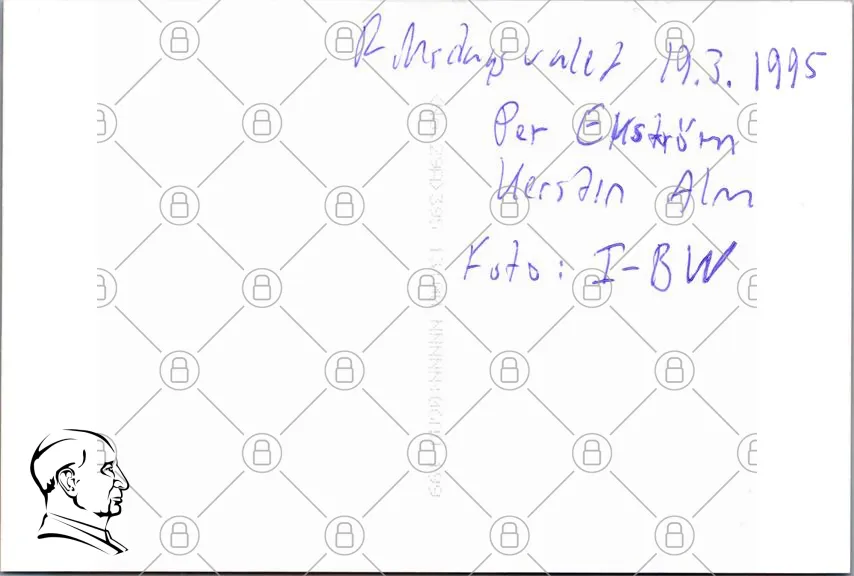 Riksdagsvalet 19.3.1995
Per Ekström
Kerstin Alm
Foto: I-BW